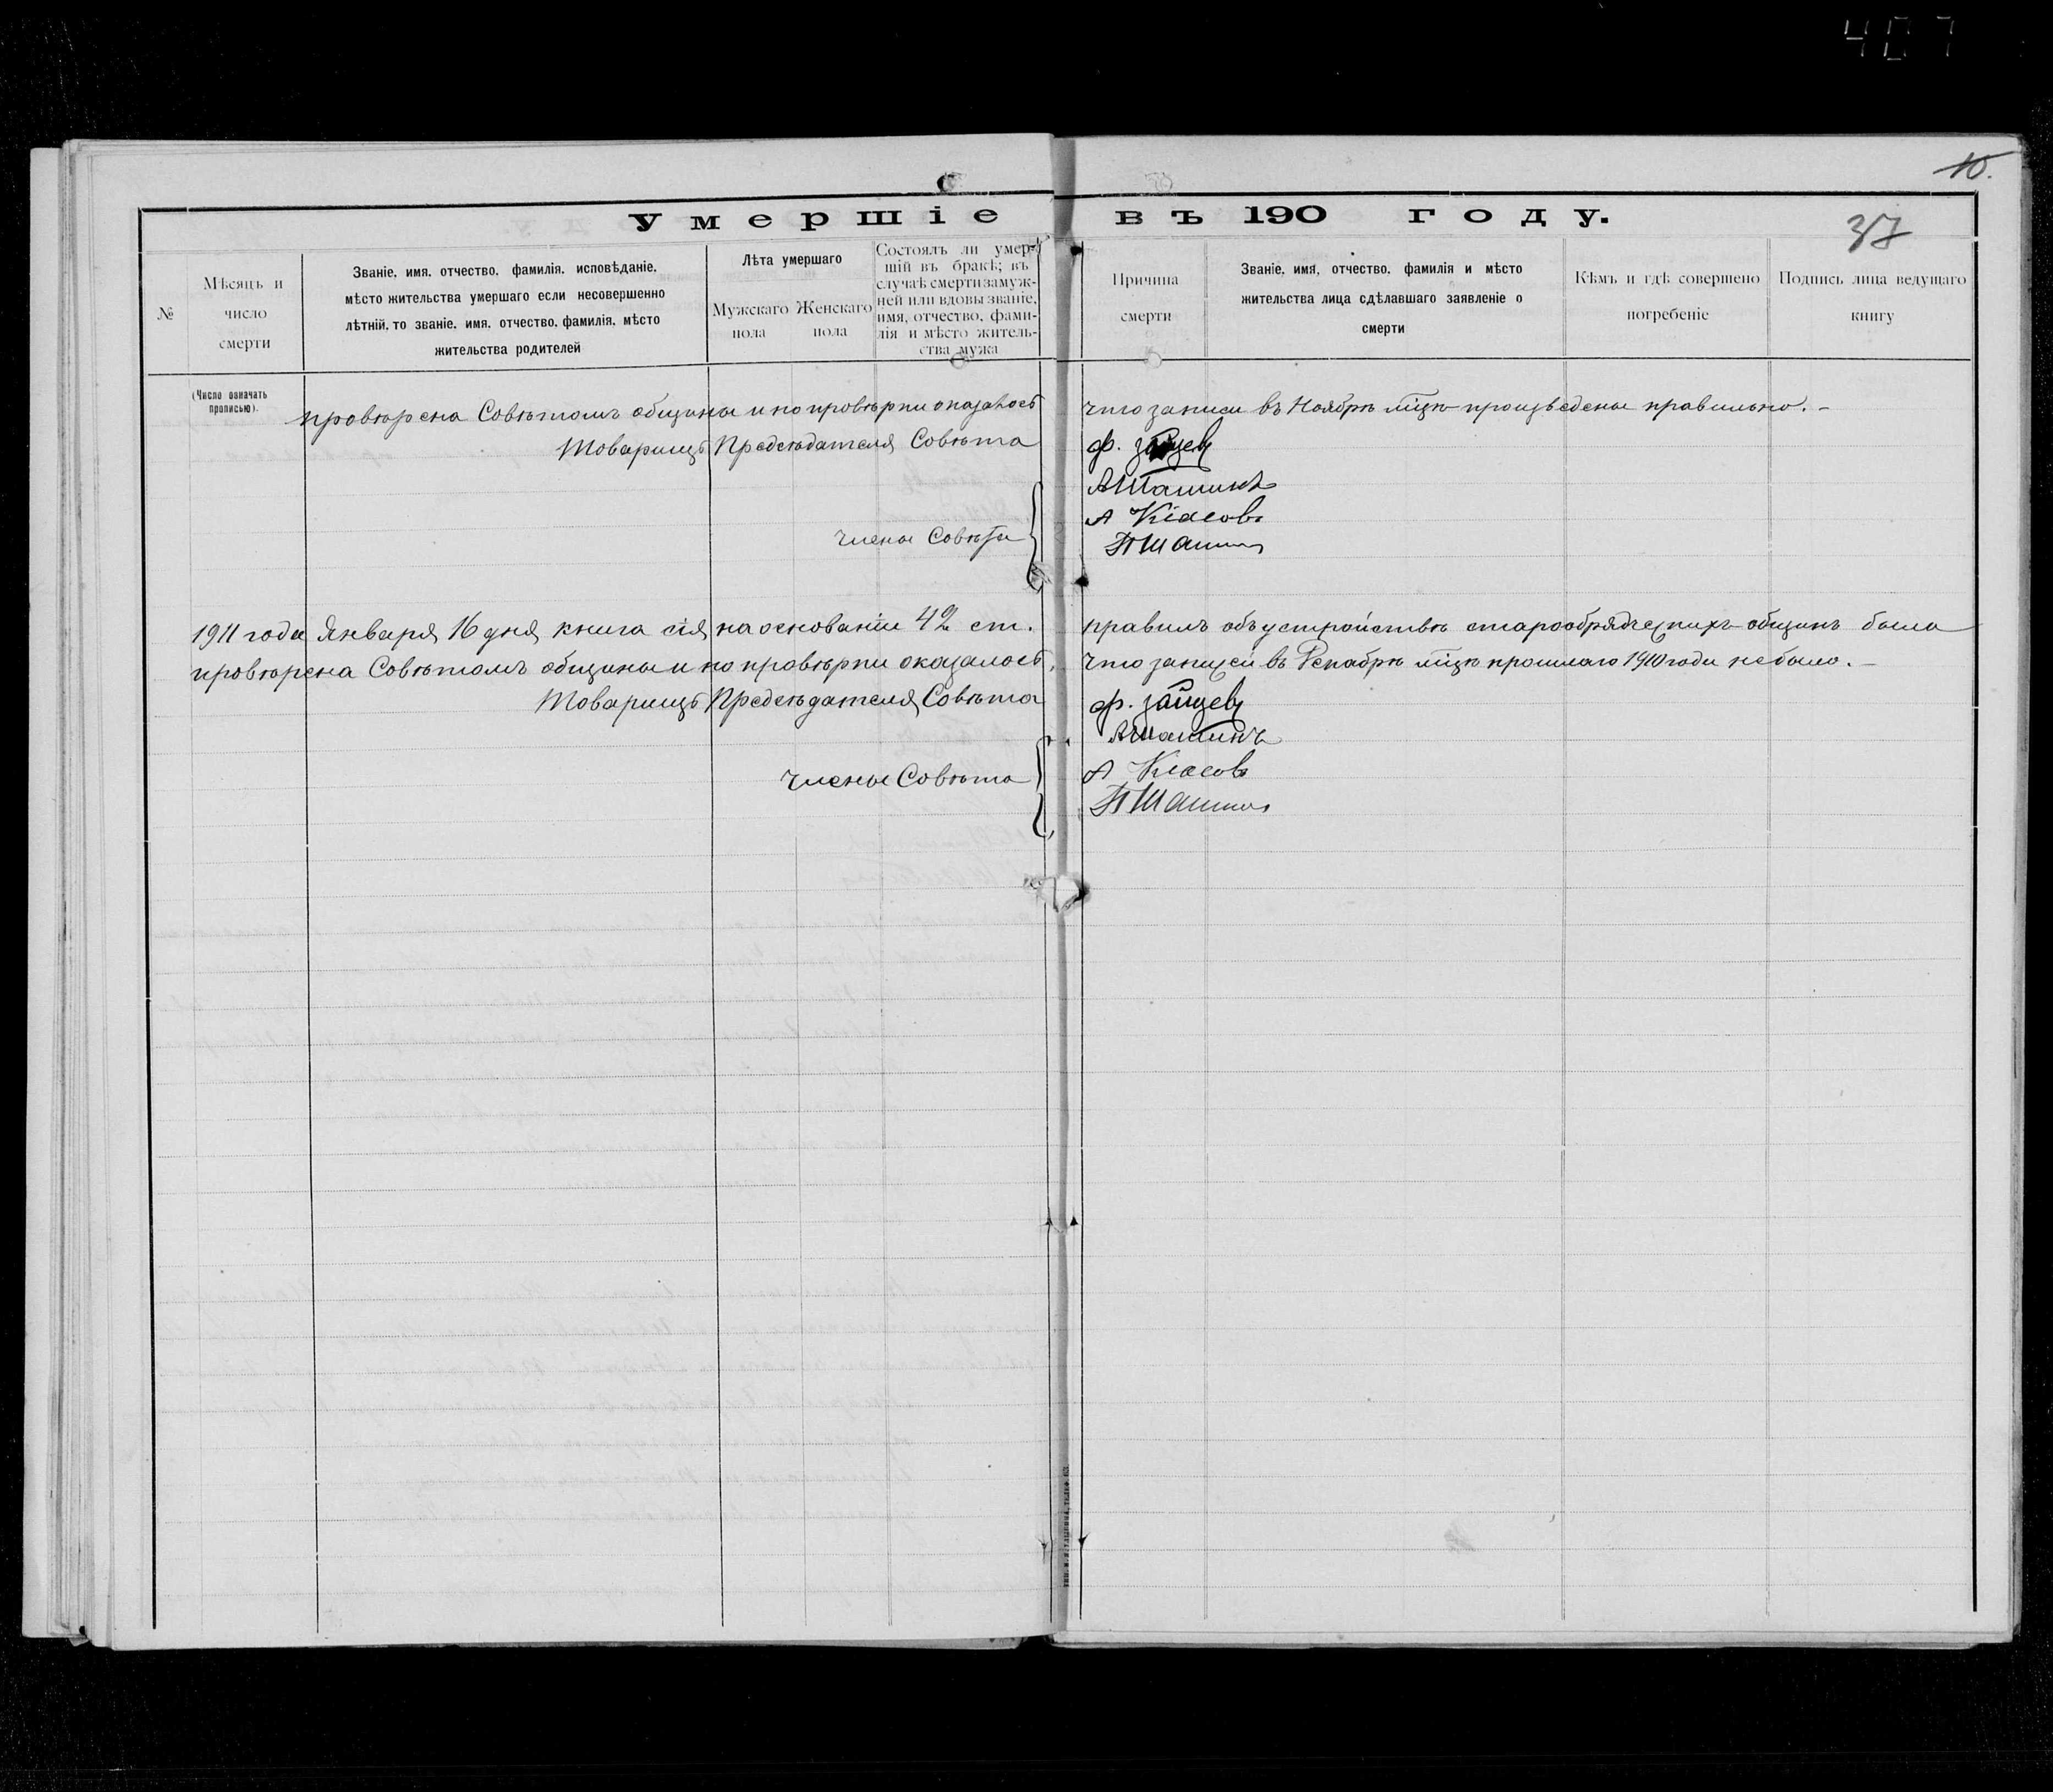 407
10.
Умершіе въ 190 году.
37
№
Мѣсяцъ и
число
смерти
Званіе, имя, отчество, фамилія, исповѣданіе,
мѣсто жительства умершаго если несовершенно
лѣтній, то званіе, имя, отчество, фамилія, мѣсто
жительства родителей
Лѣта умершаго
Мужскаго
пола
Женскаго
пола
Состоялъ ли умер-
шій въ бракѣ; въ
случаѣ смерти замуж-
ней или вдовы званіе,
имя, отчество, фами-
лія и мѣсто житель-
ства мужа
Причина
смерти
Званіе, имя, отчество, фамилія и мѣсто
жительства лица сдѣлавшаго заявленіе о
смерти
Кѣмъ и гдѣ совершено
погребеніе
Подпись лица ведущаго
книгу
(Число означать
прописью).
провѣрена Совѣтомъ общины и по провѣрки оказалось что записи въ Ноябрѣ мцѣ произведены правильно. –
Товарищъ Предсѣдателя Совѣта Ф. Зайцевъ
А Шашинъ
А Класовъ
Члены Совѣта
П Шашин
1911 года Января 16 дня книга сія на основаніи 42 ст. правилъ объ устройствѣ старообрядческихъ общинъ была
провѣрена Совѣтомъ общины и по провѣрки оказалось, что записей въ Декабрѣ мцѣ прошлаго 1910 года небыло. –
Товарищъ Предсѣдателя Совѣта Ф. Зайцевъ
А Шашинъ
Члены Совѣта А Класовъ
П Шашин